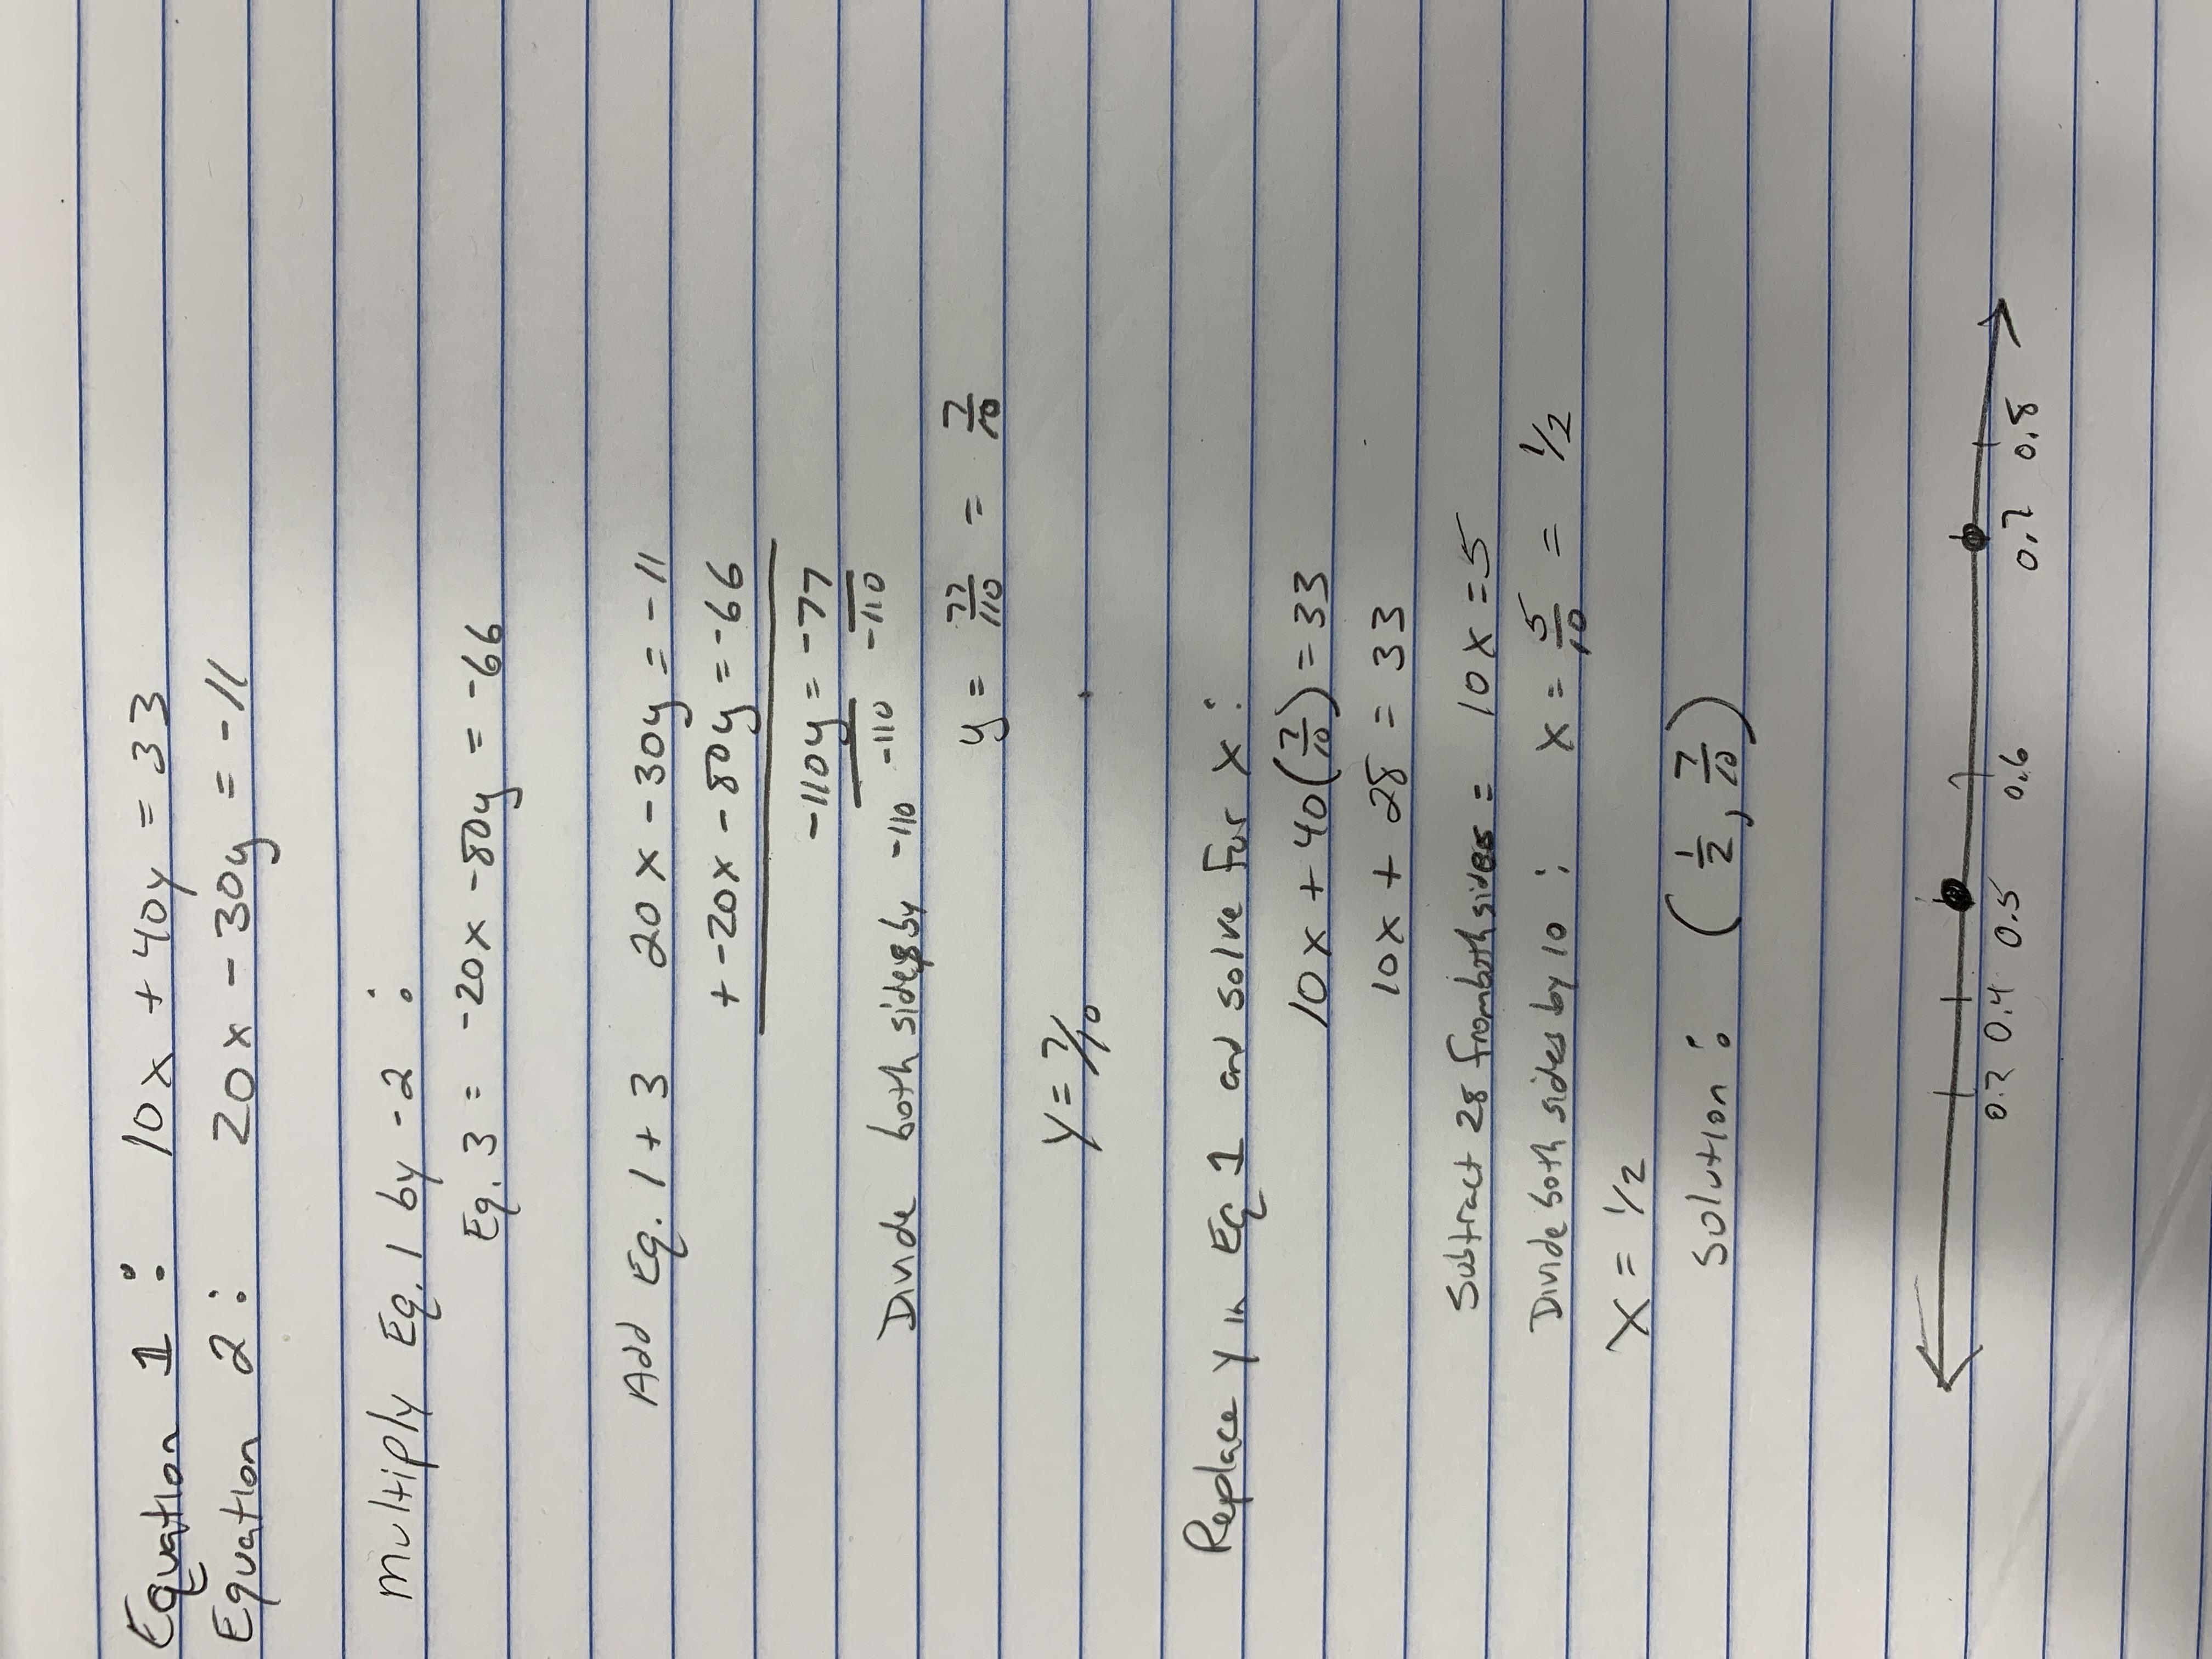 Equation 1: 10x + 40y = 33
Equation 2: 20x - 30y = -11
Multiply Eq. 1 by -2:
Eq. 3 = -20x - 80y = -66
Add Eq. 1 + 3 20x - 30y = -11
+ -20x - 80y = -66
-110y = -77
-110 -110
Divide both sides by -110
y = 77/110 = 7/10
y = 7/10
Replace y in Eq 1 and solve for x:
10x + 40(7/10) = 33
10x + 28 = 33
Subtract 28 from both sides = 10x = 5
Divide both sides by 10: x = 5/10 = 1/2
x = 1/2
Solution: (1/2, 7/10)
0.4 0.5 0.6 0.7 0.8